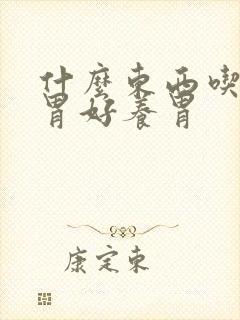 什麼東西喫
胃好養胃
康定東